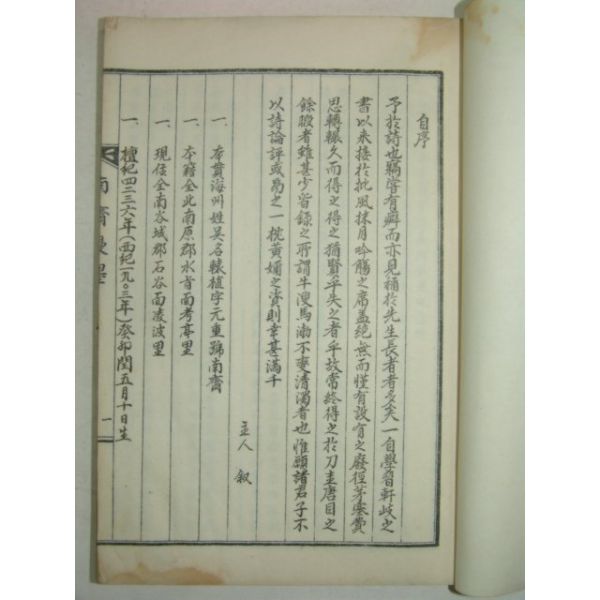 自序
予於詩也竊嘗有癖而亦見稱於先生長者者多矣一自學習軒岐之
書以來接於批風抹月吟觴之席盖絶無而僅有設有之廢徑茅塞費
思轉輾久而得之得之猶賢乎失之者乎故常終得之於刀圭唐目之
餘暇者雖甚少皆錄之所謂牛溲馬渤不變清濁者也惟願諸君子不
以詩論評或爲之一枕黃嬭之資則幸甚滿千
主人 叙
一、本貫海州姓吳名轍植字元重號南齋
一、本籍全北南原郡水旨面考亭里
一、現住全南谷城郡石谷面凌波里
一、檀紀四二三六年(西紀一九〇三年)癸卯閏五月十日生
南齋漫墨
一